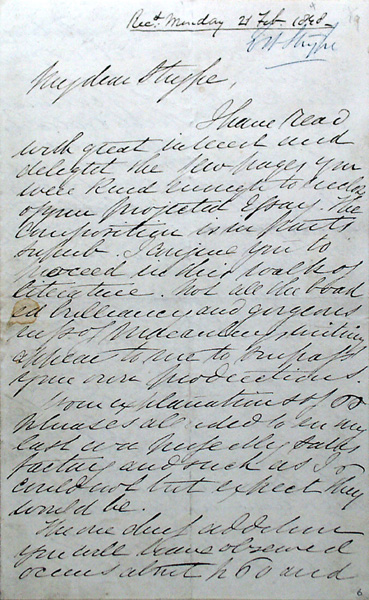 Rec.d Monday 21 Feb. 1848
My dear Strype,
I have read
with great interest and
delight the few pages you
were kind enough to
of your projected Essay. The
Composition is in parts
superb. I conjure you to
proceed in this walk of
literature. Not all the boast
ed brilliancy and gorgeous
ness of Macaulay's writing
appear to me to surpass
your own productions.
Your explanations of
phrases alluded to in my
last are perfectly satis
factory and such as I
could not but expect they
would be.
The one
you will have observed
occurs about p and
6